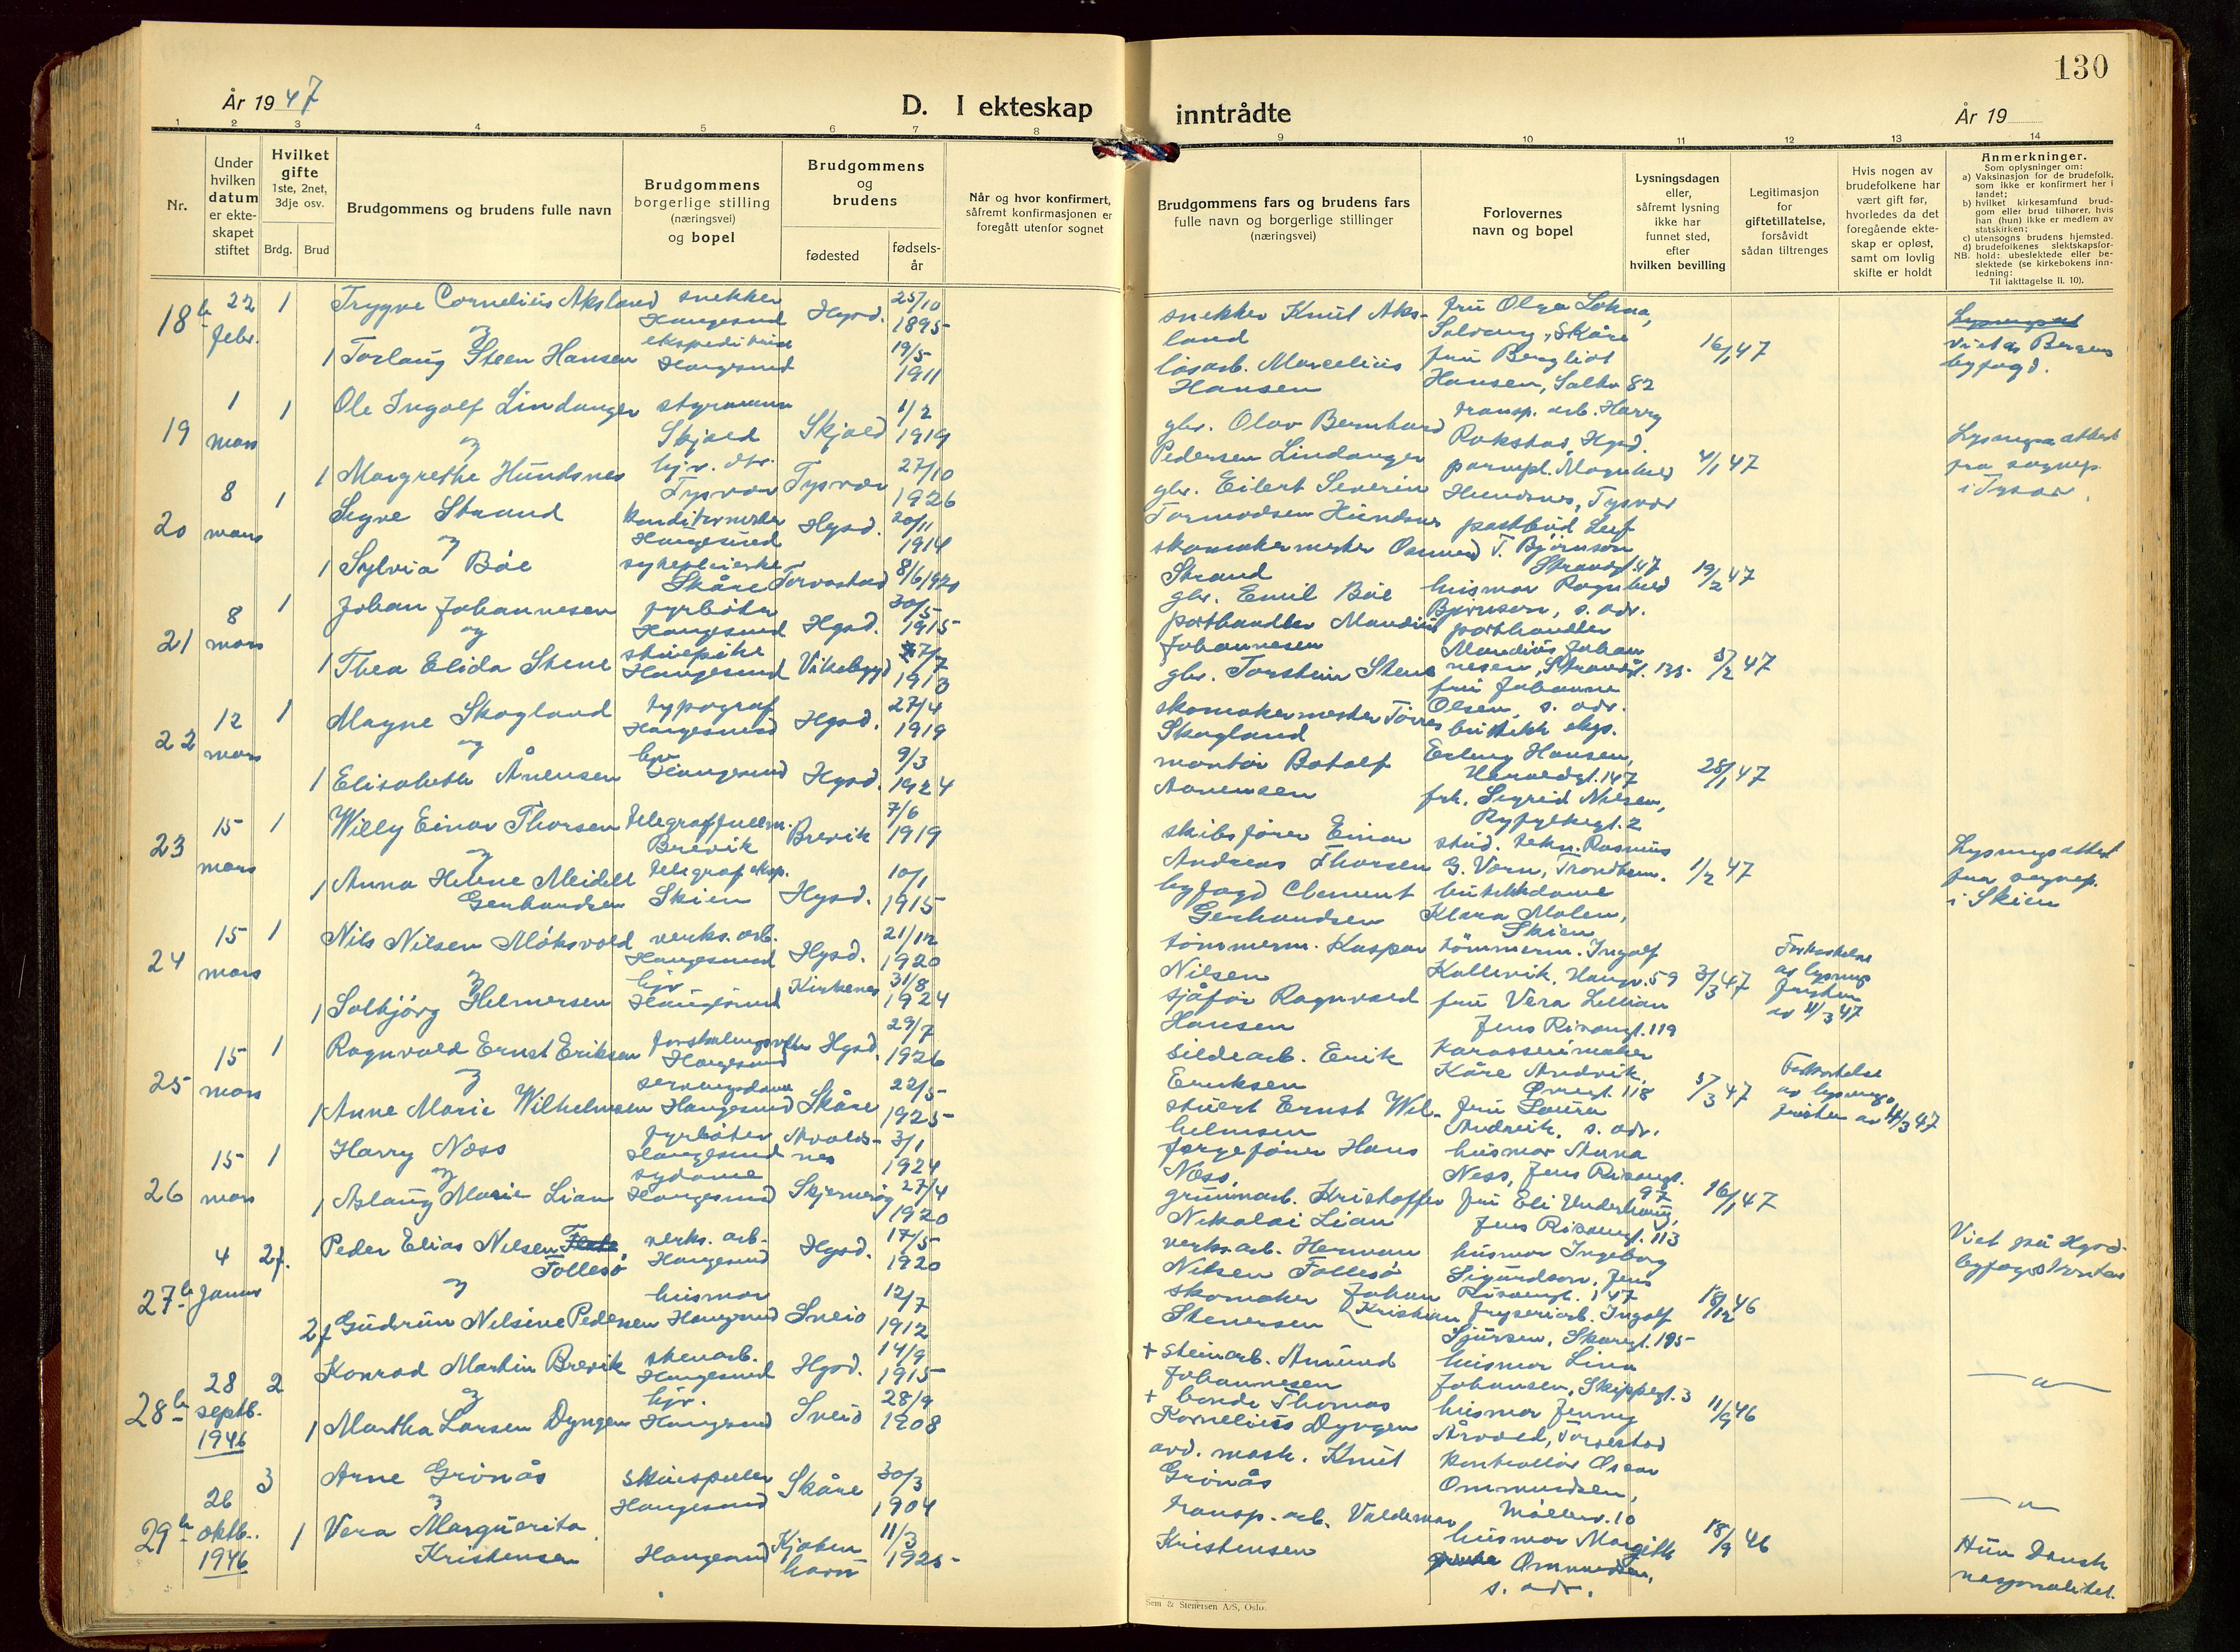 130
År 1947
D. I ekteskap inntrådte
År 19
1 2 3 4 5 6 7 8 9 10 11 12 13 14
Nr.
Under hvilken datum er ekteskapet stiftet
Hvilket gifte
1ste, 2net, 3dje osv.
Brdg. Brud
Brudgommens og brudens fulle navn
Brudgommens borgerlige stilling (næringsvei) og bopel
Brudgommens og brudens
fødested fødselsår
Når og hvor konfirmert, såfremt konfirmasjonen er foregått utenfor sognet
Brudgommens fars og brudens fars fulle navn og borgerlige stillinger (næringsvei)
Forlovernes navn og bopel
Lysningsdagen eller, såfremt lysning ikke har funnet sted, efter hvilken bevilling
Legitimasjon for giftetillatelse, forsåvidt sådan tiltrenges
Hvis nogen av brudefolkene har vært gift før, hvorledes da det foregående ekteskap er opløst, samt om lovlig skifte er holdt
Anmerkninger.
Som oplysninger om:
a) Vaksinasjon for de brudefolk, som ikke er konfirmert her i landet;
b) hvilket kirkesamfund brudgom eller brud tilhører, hvis han (hun) ikke er medlem av statskirken;
c) utensogns brudens hjemsted.
d) brudefolkenes slektskapsforhold: ubeslektede eller beslektede (se kirkebokens innledning:
NB. Til iakttagelse II. 10).
18b 22 febr. 1 Trygve Cornelius Aksland snekker Haugesund Hgsd. 25/10 1895
og
1 Torlaug Steen Hansen Haugesund 19/5 1911
snekker Knut Aksland
løsarb. Marcelius Hansen
fru Olga
fru Bergliot Hansen, 82
16/1 47
viet av Bergens byfogd.
19 1 mars 1 Ole Ingolf Lindanger styrmann Skjold Skjold 1/2 1919
og
1 Margrethe Hundsnes hjv. dtr. Tysvær Tysvær 27/10 1926
gbr. Olav Bernhard Pedersen Lindanger
gbr. Eilert Severin Tormodsen Hundsnes
transp. arb. Harry Rokstad, Hgsd.
Hundsnes, Tysvær
4/1 47
Lysningsattest fra sognep. i Tysvær.
20 8 mars 1 Sigve Strand konditormester Haugesund Hgsd. 20/11 1914
og
1 Sylvia Bøe sykepleierske Skåre Torvastad 8/6 1920
skomakermester Osmund Strand
gbr. Emil Bøe
postbud Leif T. Bjørnson Strandgt. 47
husmor Ragnhild Bjørnson, s. adr.
19/2 47
21 8 mars 1 Johan Johannesen fyrbøter Haugesund Hgsd. 30/5 1915
og
1 Thea Elida Stene stuepike Haugesund Vikebygd 7/7 1913
porthandler Mandius Johannesen
gbr. Torstein Stene
porthandler Mandius Johannesen, Strandgt. 135
fru Johanne Olsen, s. adr.
5/2 47
22 12 mars 1 Magne Skogland typograf Haugesund Hgsd. 27/4 1919
og
1 Elisabeth Ånensen hjv. Haugesund Hgsd. 9/3 1924
skomakermester Tørres Skogland
montør Botolf Aanensen
butikk eksp. Erling Hansen, Haraldsgt. 147
frk. Sigrid Nilsen, Ryfylkegt. 2
28/1 47
23 15 mars 1 Willy Einar Thorsen telegraffullm. Brevik Brevik 7/6 1919
og
1 Anna Helene Meidell Gerhardsen telegrafeksp. Skien Hgsd. 10/1 1915
skibsfører Einar Andreas Thorsen
byfogd Clement Gerhardsen
stud. tekn. Rasmus G. Vorn, Trondheim.
butikkdame Klara Molen, Skien
1/2 47
Lysningsattest fra sognep. i Skien
24 15 mars 1 Nils Nilsen Møksvold verks. arb. Haugesund Hgsd. 21/12 1920
og
1 Solbjørg Helmersen hjv. Haugesund Kirkenes 31/8 1924
tømmerm. Kaspar Nilsen
sjåfør Ragnvald Hansen
tømmerm. Ingolf Kallevik, Haugv. 59
fru Vera Lillian Jens Risøengt. 119
3/3 47
Forkortelse av lysnings fristen av 11/3 47
25 15 mars 1 Ragnvald Ernst Eriksen Haugesund Hgsd. 29/7 1926
og
1 Anne Marie Wilhelmsen serveringsdame Haugesund Skåre 22/5 1925
sildearb. Erik Eriksen
stuert Ernst Wilhelmsen
Karosserimaker Kåre Andvik, 118
fru Laura Andvik, s. adr.
5/3 47
Forkortelse av lysnings fristen av 11/3 47
26 15 mars 1 Harry Næss fyrbøter Haugesund Avaldsnes 3/1 1924
og
1 Aslaug Marie Lian sydame Haugesund Skjernerøy 27/4 1920
fergefører Hans Næss,
gruvearb. Kristoffer Nikolai Lian
husmor Anna Ness, Jens Risøengt. 97
fru Eli Underhaug, Jens Risøengt. 113
16/1 47
27b 4 januar 2f. Peder Elias Nilsen Follesø verks. arb. Haugesund Hgsd. 17/5 1920
og
2f Gudrun Nelsine Pedersen husmor Haugesund Sveio 12/7 1912
verks. arb. Herman Nilsen Follesø
skomaker Johan Kristian Stenersen
husmor Ingeborg Sigurdson, Jens Risøengt. 147
fryseriarb. Ingolf Sjursen, Skaregt. 195
18/12 46
Viet på Hgsd. byfogdkontor
28b 28 septb. 1946 2 Konrad Martin Brevik stenarb. Haugesund Hgsd. 14/9 1915
og
1 Martha Larsen Dyngen hjv. Haugesund Sveio 28/9 1908
+ steinarb. Amund Johannesen
+ bonde Thomas Kornelius Dyngen
husmor Lina Johansen, Skippergt. 3
husmor Jenny Årvold, Torvestad
11/9 46
— " —
29b 26 oktb. 1946 3 Arne Grønås skuespiller Haugesund Skåre 30/3 1904
og
1 Vera Marguerita Kristensen Haugesund Kjøbenhavn 11/3 1925
avd. mask. Knut Grønås
transp. arb. Valdemar Kristensen
kontrollør Oscar Ommundsen, Møllerv. 10
husmor Margith Ommundsen, s. adr.
18/9 46
— " —
Hun Dansk nasjonalitet.
Sem & Stenersen A/S, Oslo.